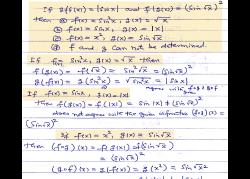 If g(f(x)) = |sin x| and f(g(x)) = (sin √x)²
then ⓐ f(x) = sin²x, g(x) = √x
ⓑ f(x) = sin x, g(x) = |x|
ⓒ f(x) = x², g(x) = sin √x
ⓓ f and g can not be determined.
If f(x) = sin²x, g(x) = √x then
f(g(x)) = f(√x) = sin²√x = (sin √x)²
g(f(x)) = g(sin²x) = √sin²x = |sin x|
If f(x) = sin x, g(x) = |x|
then f(g(x)) = f(|x|) = sin |x| ≠ (sin √x)²
does not agree with the given
(sin √x)²
If f(x) = x², g(x) = sin √x
Then (f∘g)(x) = f(g(x)) = f(sin √x)
= (sin √x)²
(g∘f)(x) = g(f(x)) = g(x²) = sin √x²